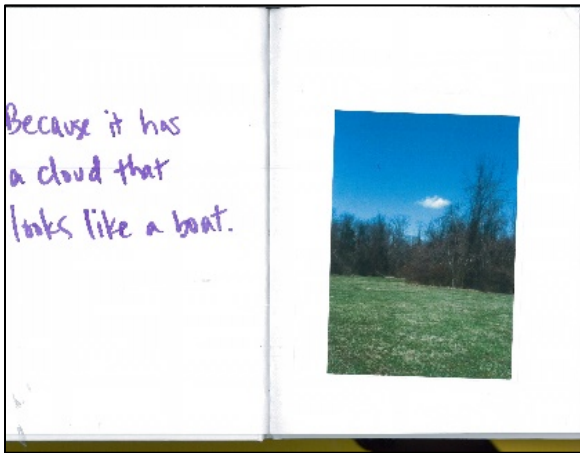 Because it has
a cloud that
looks like a boat.